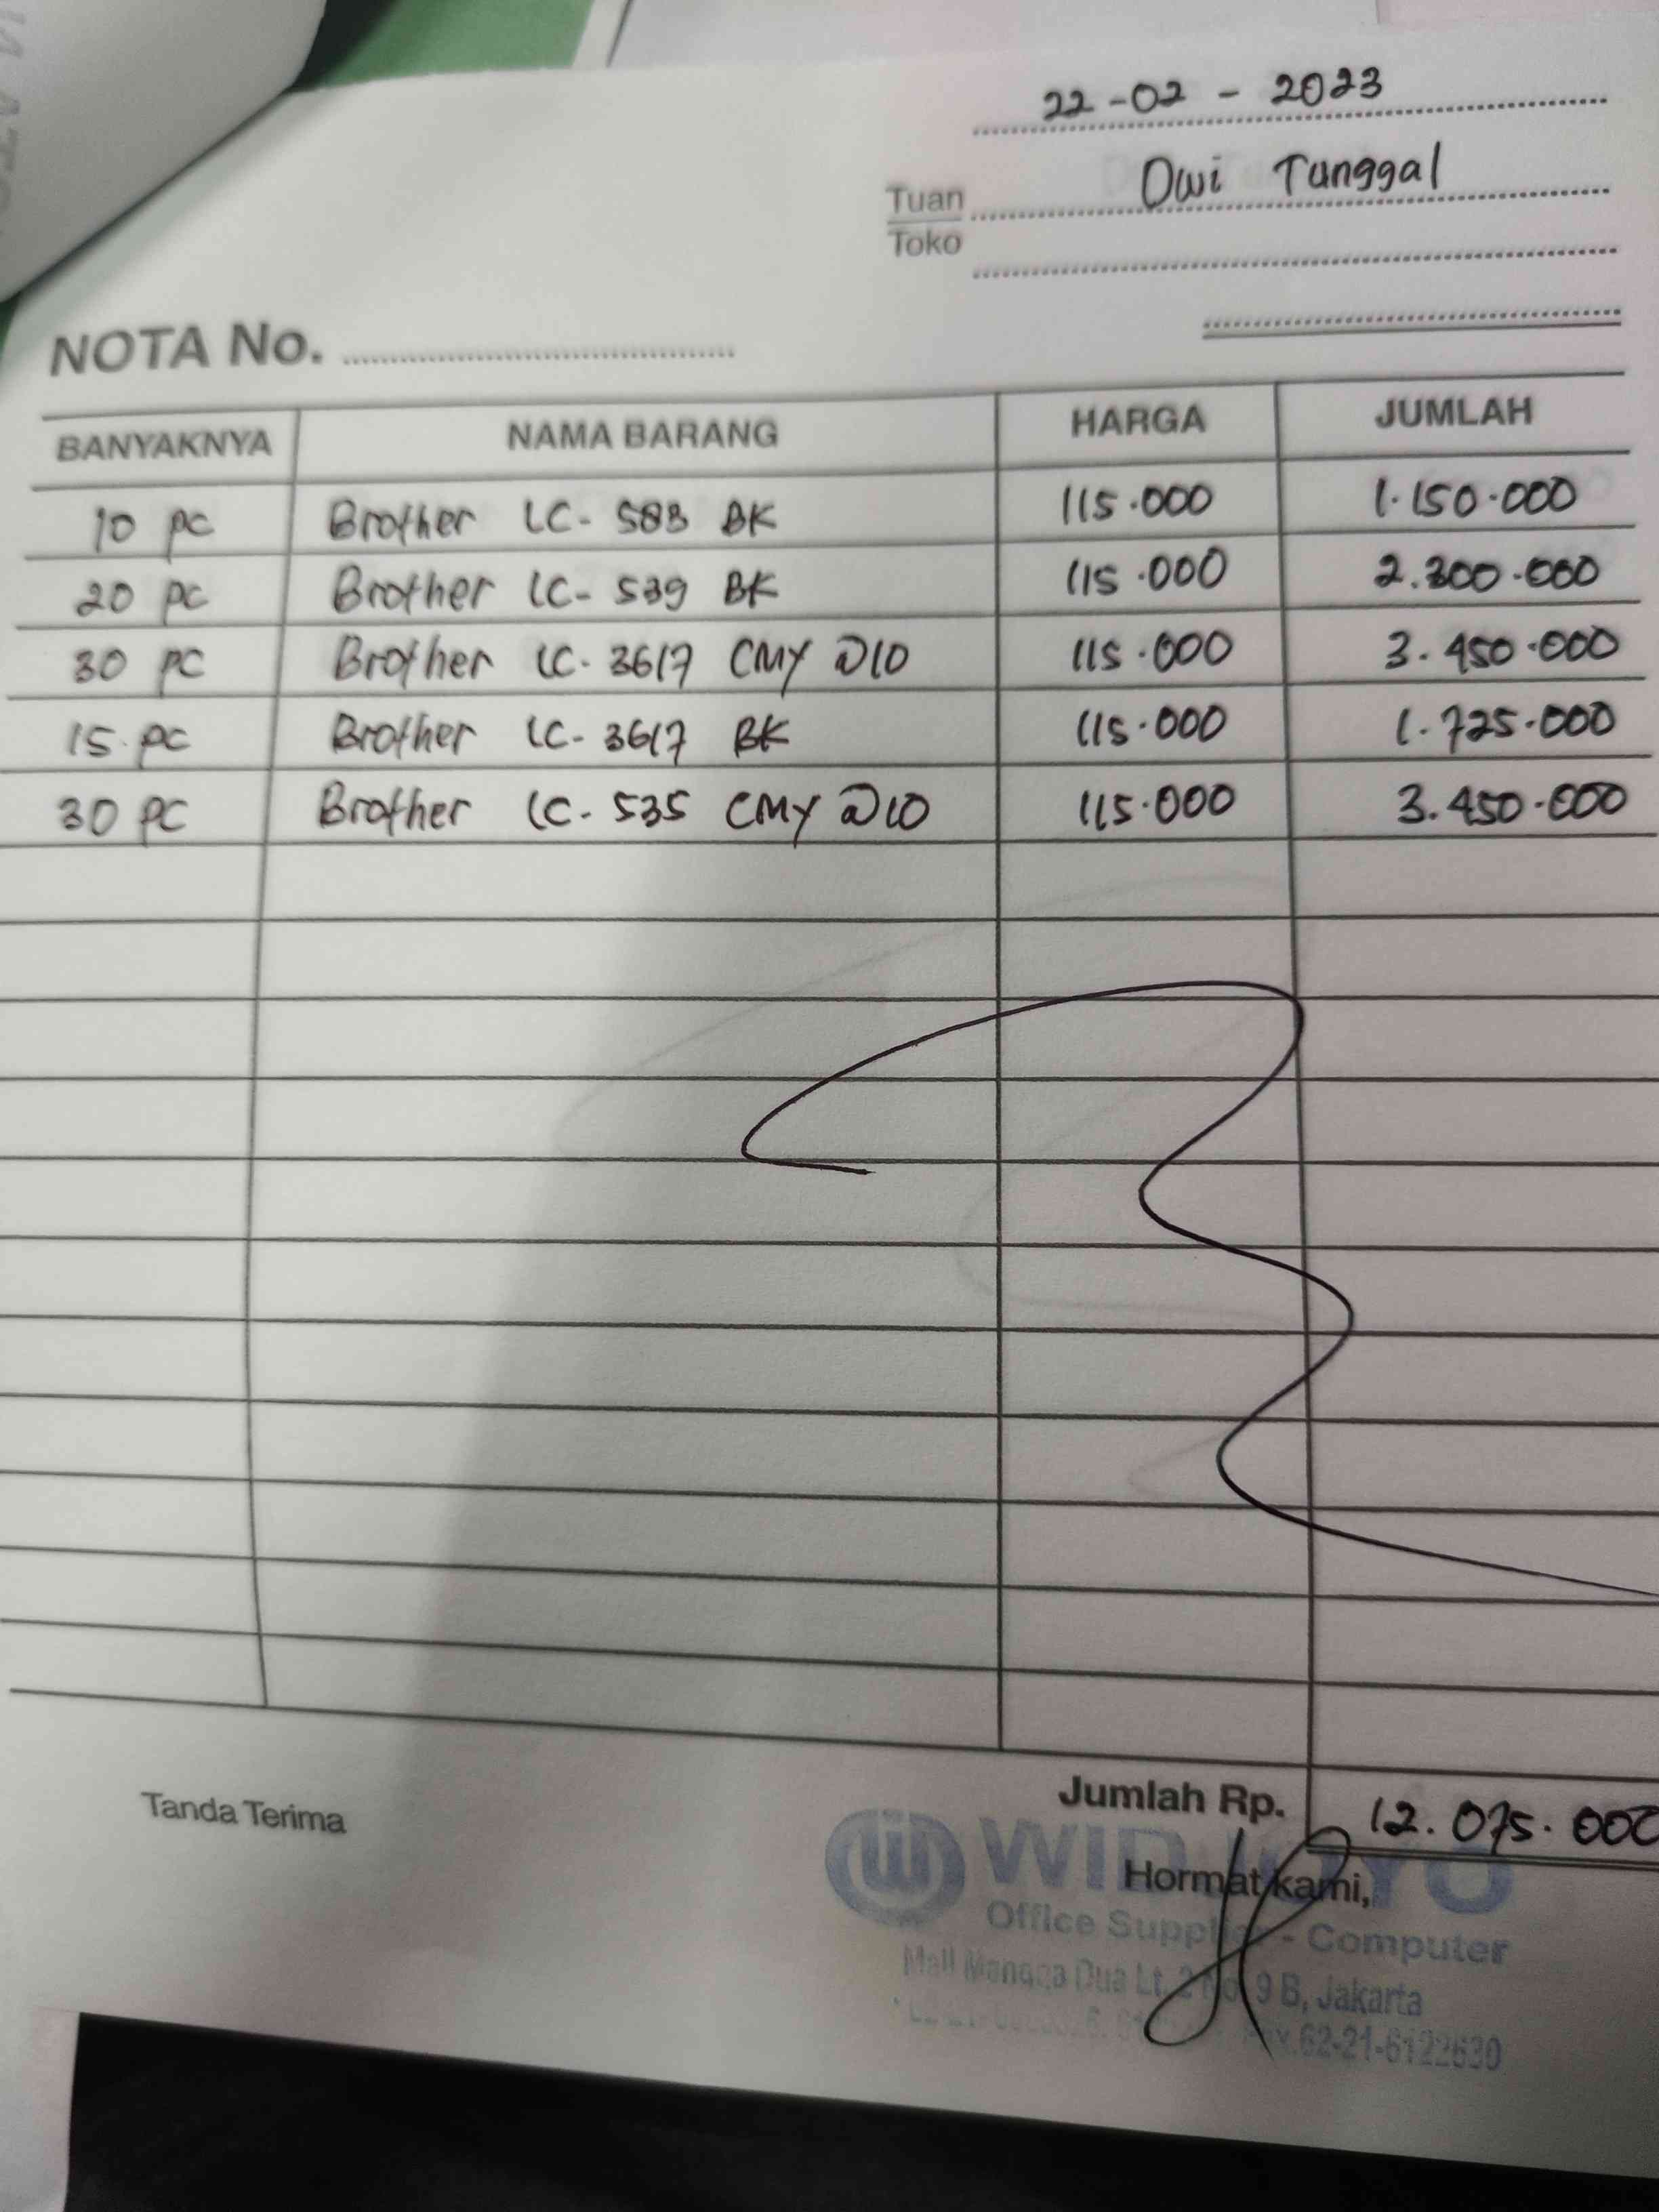 22-02-2023
Tuan Dwi Tunggal
Toko
NOTA No.
BANYAKNYA NAMA BARANG HARGA JUMLAH
10 pc Brother LC-583 BK 115.000 1.150.000
20 pc Brother LC-539 BK 115.000 2.300.000
30 pc Brother LC-3617 CMY @10 115.000 3.450.000
15 pc Brother LC-3617 BK 115.000 1.725.000
30 pc Brother LC-535 CMY @10 115.000 3.450.000
Tanda Terima
Jumlah Rp. 12.075.000
Hormat kami,
Office - Computer
Mall Mangga Dua Lt. 2 No. 9 B, Jakarta
62-21-6122630